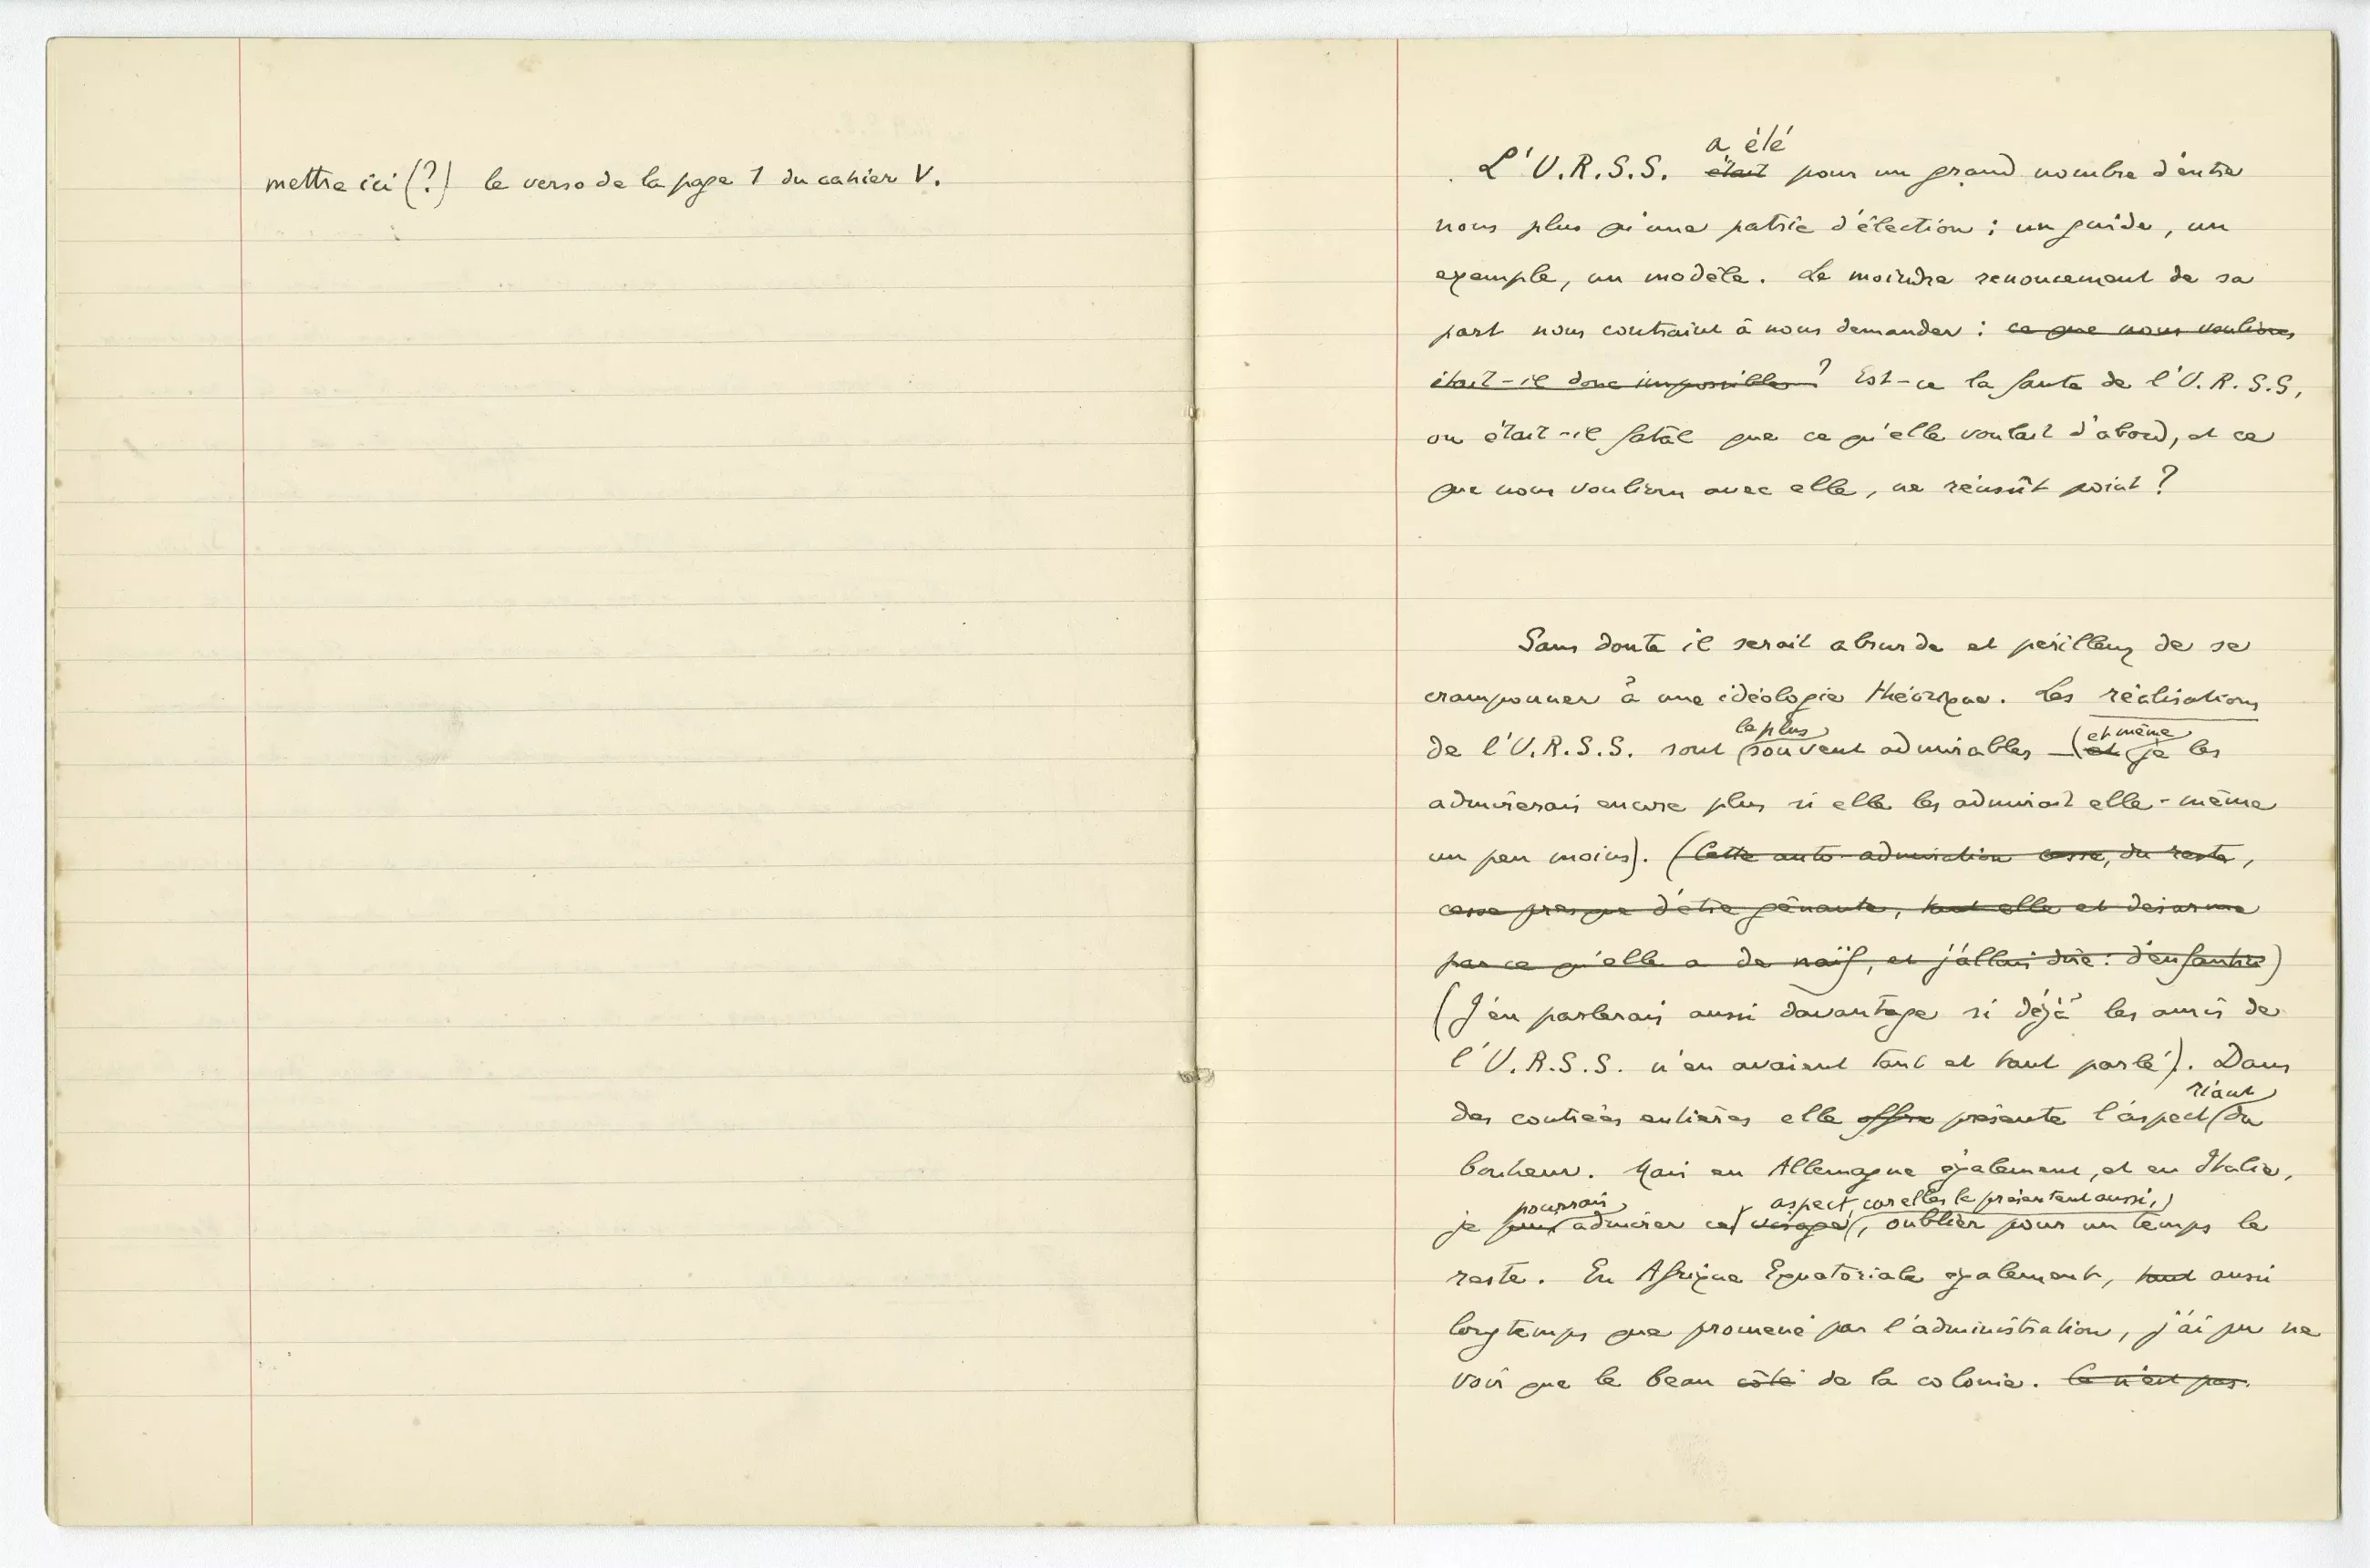 mettre ici (?) le verso de la page 1 du cahier V.
a été
L'U.R.S.S. était pour un grand nombre d'entre
nous plus qu'une patrie d'élection : un guide, un
exemple, un modèle. Le moindre renoncement de sa
part nous contraint à nous demander : ce que nous voulions
était-il donc impossible ? Est-ce la faute de l'U.R.S.S,
ou était-il fatal que ce qu'elle voulait d'abord, et ce
que nous voulions avec elle, ne réussît point ?
Sans doute il serait absurde et périlleux de se
cramponner à une idéologie théorique. Les réalisations
le plus et même
de l'U.R.S.S. sont souvent admirables — (et je les
admirerais encore plus si elle les admirait elle-même
un peu moins). (Cette auto-admiration cesse, du reste,
cesse presque d'être gênante, tant elle et désarme
par ce qu'elle a de naïf, et j'allais dire : d'enfantin)
(J'en parlerais aussi davantage si déjà les amis de
l'U.R.S.S. n'en avaient tant et tant parlé). Dans
riant
des contrées entières elle offre présente l'aspect du
bonheur. Mais en Allemagne également, et en Italie,
pourrais aspect, car elles le présentent aussi,
je puis admirer cet visage, oublier pour un temps le
reste. En Afrique Equatoriale également, tant aussi
longtemps que promené par l'administration, j'ai pu ne
voir que le beau côté de la colonie. Ce n'est pas.